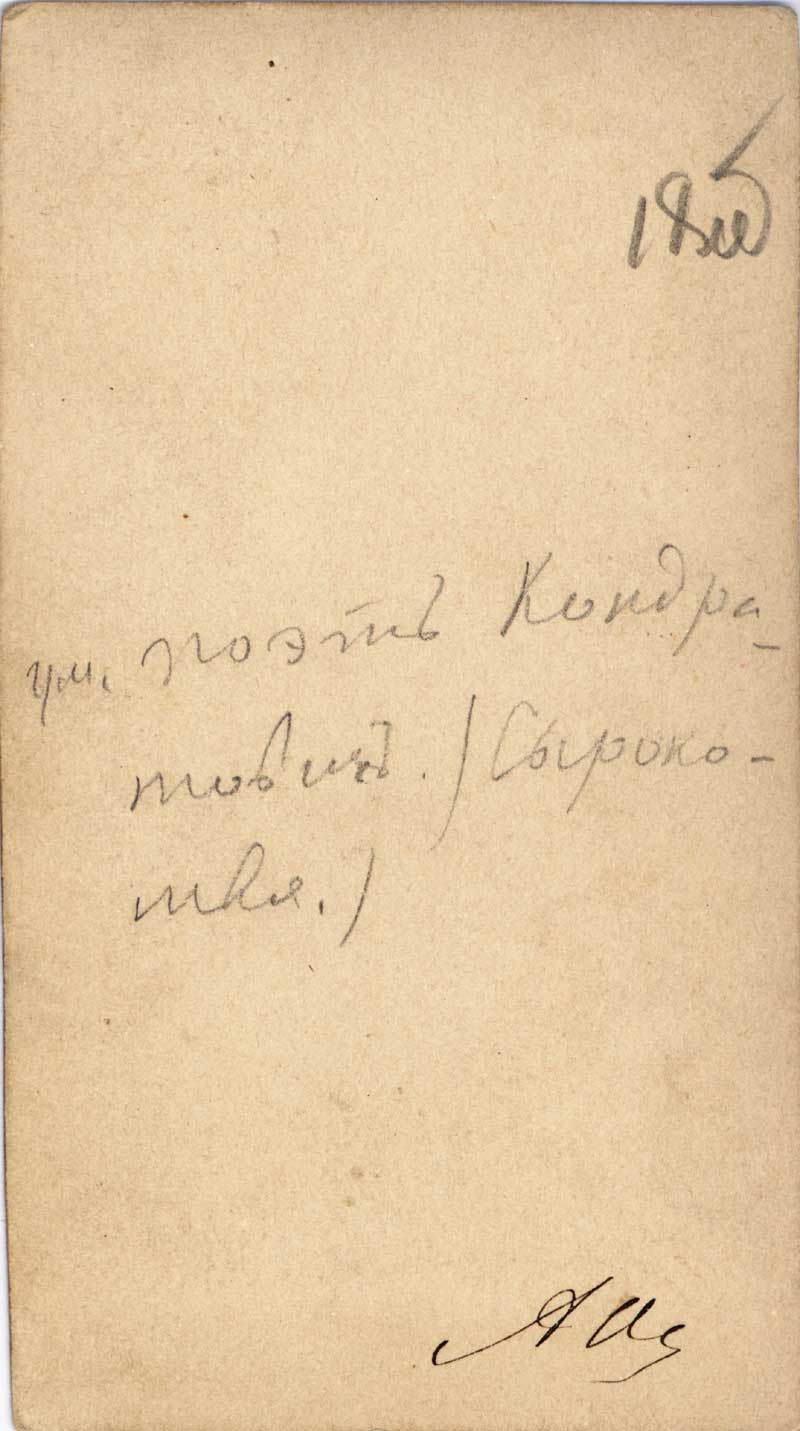 ум. поэтъ Кондра-
товичъ. (Сыроко-
мля.)